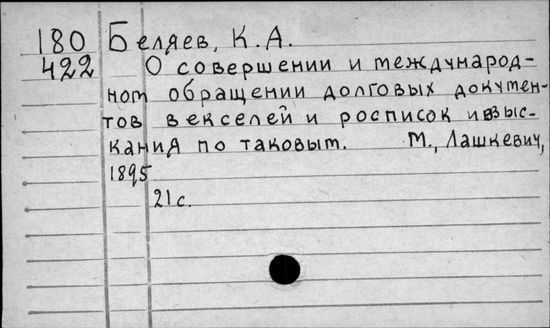 180 Беляев, К. А.
422 О совершении и международ-
ном обращении долговых докумен-
тов векселей и росписок и взыс-
кания по таковым. М., Лашкевич,
1895
21 с.